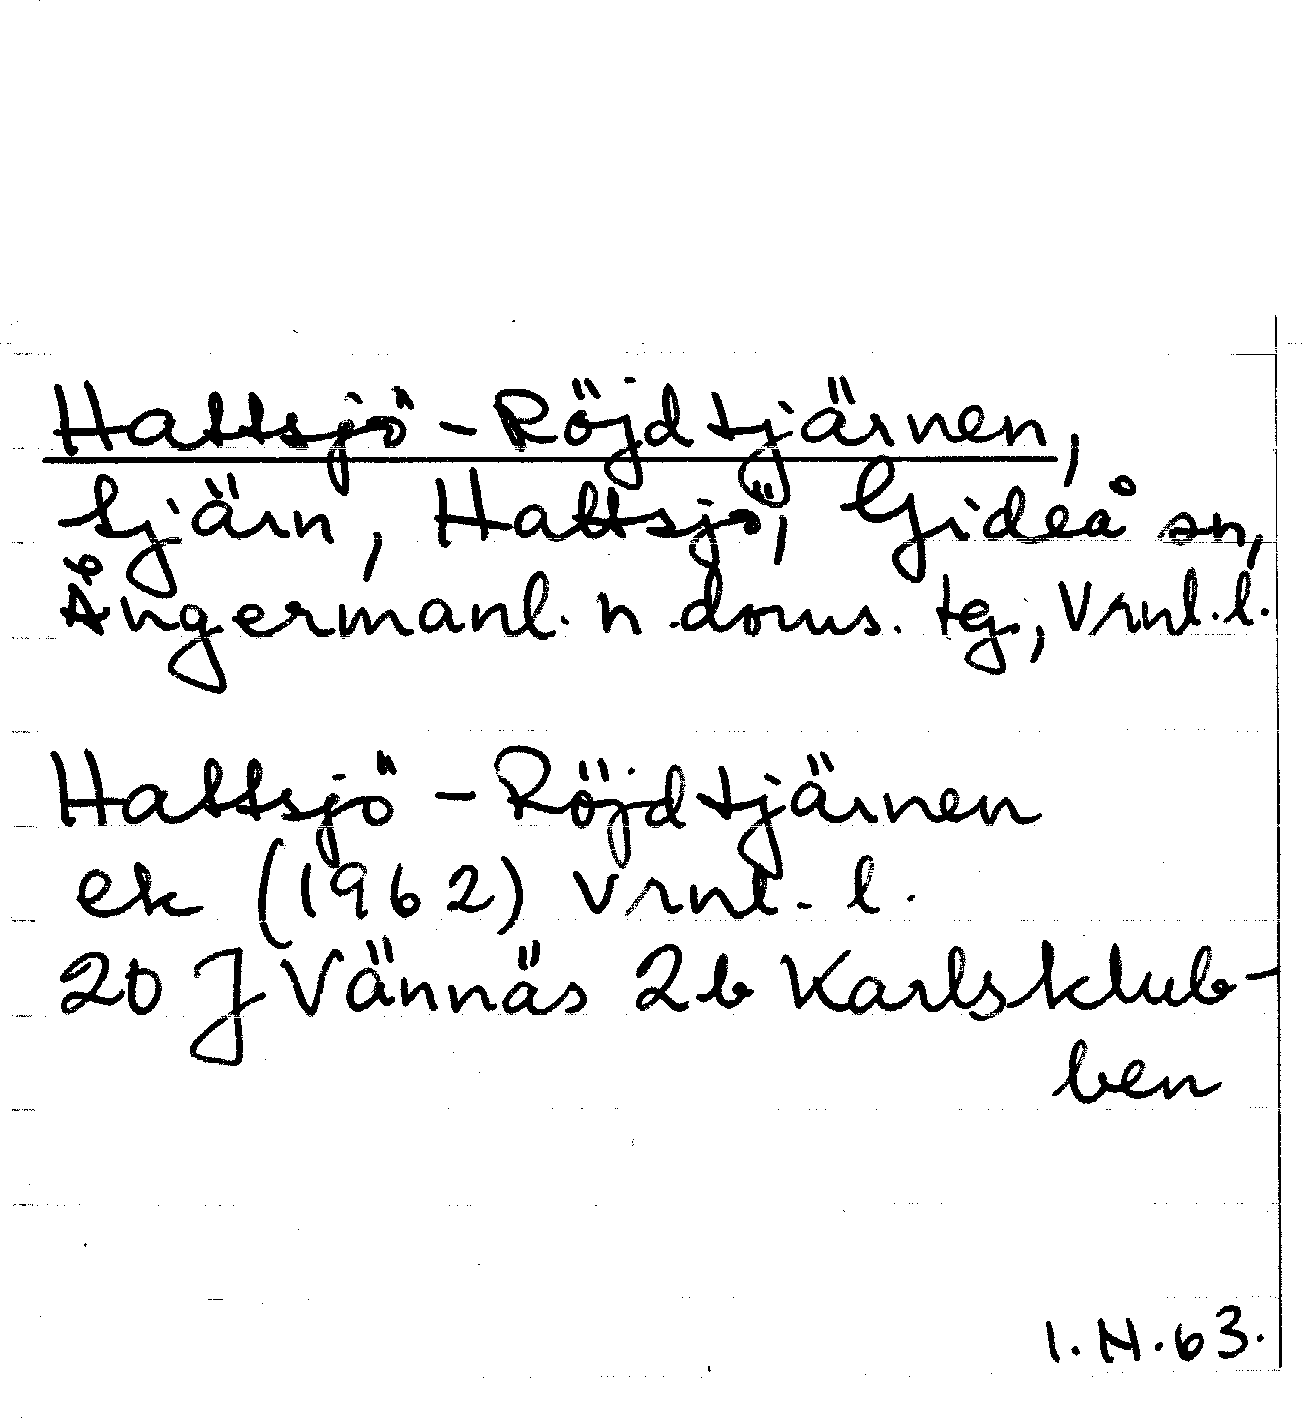 Hattsjö-Röjdtjärnen,
tjärn, Hattsjö, Gideå sn,
Ångermanl. n doms. tg, Vrnl. l.
Hattsjö-Röjdtjärnen
ek (1962) Vrnl. l.
20 J Vännäs 2b Karlsklub-
ben
I.N.63.